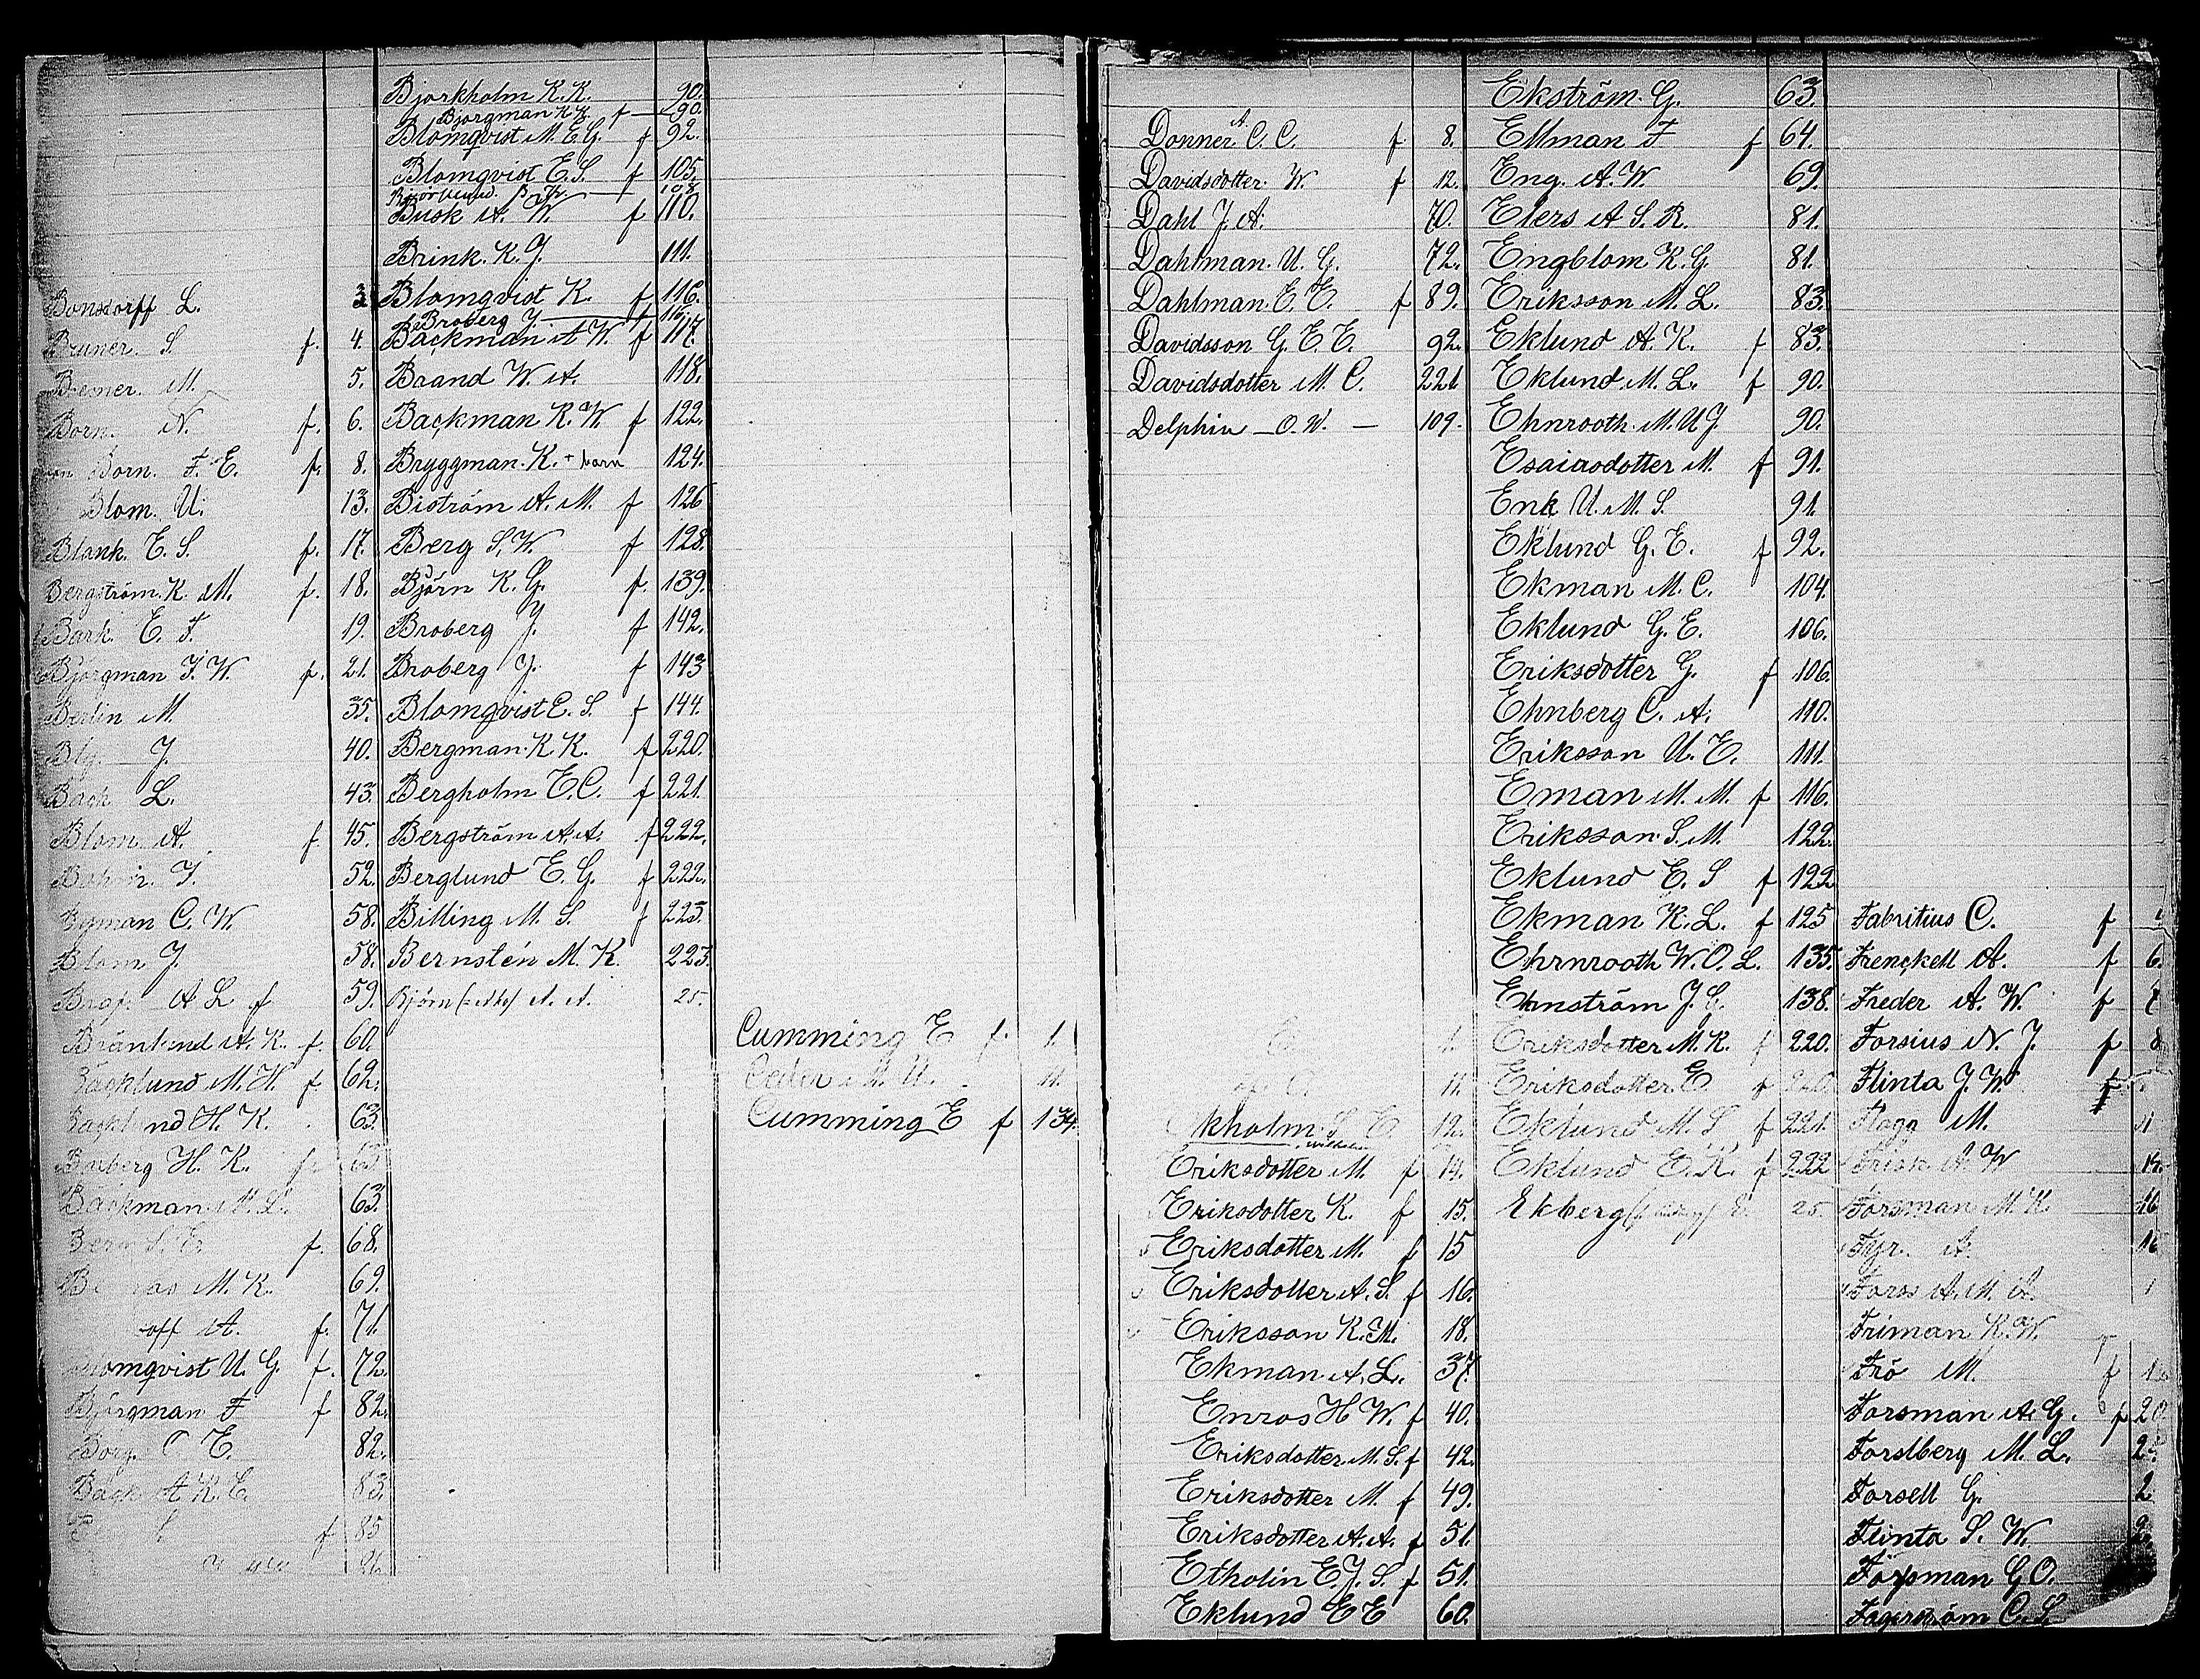 Bonsdorff L. 3
Bruner. S. f. 4.
Bremer. M. 5.
Born. N. f. 6.
Born. F. E. f. 8.
Blom. U. 13.
Blank. E. S. f. 17.
Bergström. K. M. f. 18.
Bark. E. F. 19.
Bjorgman F. W. f. 21.
Berlin M. 35.
Bly. J. 40.
Back L. 43.
Blom. A. f 45.
52.
Byman C. W. 58.
Blom J. 58.
A L f 59.
Bränlund A. K. f. 60.
Bäcklund M. H. f 62.
H. K. 63.
H. K. 63
Backman M. L. 63.
S. E. f. 68.
M. K. 69.
off A. f. 71.
Blomqvist U. G. f. 72.
Björgman F f 82.
Borg. C E. 82.
Bäck A K. E. 83.
f 85
86
Bjorkholm K. K. 90.
Bjorgman K K f 90.
Blomqvist M. E. G. f 92.
Blomqvist E. S. f 105.
108
Busk A. W. f 110.
Brink. K. J. 111.
Blomqvist K. f 116.
Broberg J. f 116.
Backman A W. f 117.
Brand W. A. 118.
Backman K. W. f 122.
Bryggman. K. + barn 124.
Biström A. M. f 126
Berg S. W. f 128.
Björn K. G. f. 139.
Broberg J. f 142.
Broberg J. f 143
Blomqvist E. S. f 144.
Bergman. K K. f 220.
Bergholm E. C. f 221.
Bergström A. A. f 222.
Berglund E. G. f 222.
Billing M. S. f 223.
Bernstén M. K. 223.
Björn A. A. 25.
Cumming E f. 1.
Ceder M. U. 11.
Cumming E f 134.
Donner A C. C. f 8.
Davidsdotter. W. f 12.
Dahl J. A. 70.
Dahlman. U. G. 72.
Dahlman. E. E. f 89.
Davidsson G. E. E. 92.
Davidsdotter M. C. 221
Delphin – O. W. – 109.
1.
O. 11.
Ekholm S. E. 12.
Eriksdotter M. f 14.
Eriksdotter K. f 15.
Eriksdotter M. f 15
Eriksdotter A. S. f 16.
Eriksson K. M. 18.
Ekman A. L. 37.
Enros H W. f 40.
Eriksdotter M. S. f 42.
Eriksdotter M. f 49.
Eriksdotter A. A. f 51.
Etholin E. J. S. f 51.
Eklund E E 60.
Ekström. G. 63.
Ellman F f 64.
Eng. A. W. 69.
Elers A S. R. 81.
Engblom K. G. 81.
Eriksson M. L. 83.
Eklund A. K. f 83.
Eklund M. L. f 90.
Ehnrooth. M. U J 90.
Esaiasdotter M. f 91.
Enk U. M. S. 91.
Eklund G. E. f 92.
Ekman M. C. 104.
Eklund G. E. 106.
Eriksdotter G. f 106.
Ehnberg C. A. 110.
Eriksson U. E. 111.
Eman M. M. f 116.
Eriksson. S. M. 122.
Eklund E. S f 122
Ekman K. L. f 125
Ehrnrooth W. O. L. 135.
Ehnström J. E. 138.
Eriksdotter M. K. f 220.
Eriksdotter E f 220.
Eklund M. S f 221.
Eklund E. K. f 222
Ekberg 25.
Fabritius C. f
Frenckell A. f 6.
Freder A. W. f
Forsius N. J. f 8
Flinta J. W. f
Flagg M. 11
Frisk A W 14.
Forsman M. K. 16
Fyr. A. 16
Forss A. M. A.
Friman K. W.
Frö M. f
Forsman A. G. f 20.
Forstberg M. L. 2
Forsell G. 2
Flinta S. W. 2
Forsman G O.
Fagerström C. L.